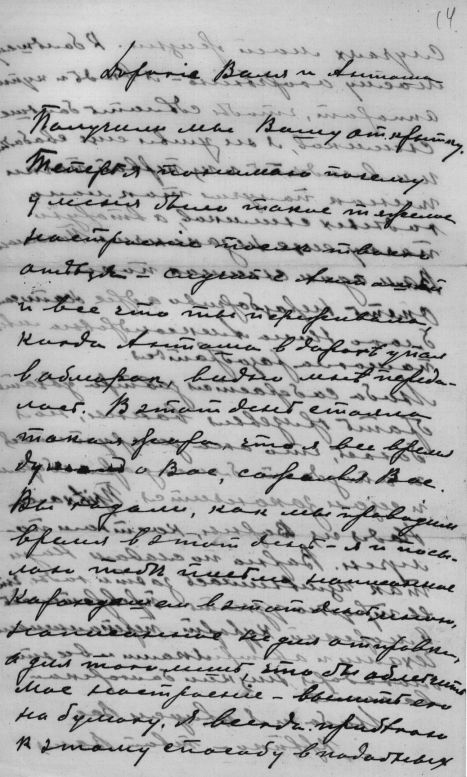 14
Дорогие Валя и Антоша
Получили мы Вашу открытку.
Теперь я понимаю почему
у меня было такое тяжелое
настроение после твоего
отъезда – случай с Антошей
и все что ты переживала,
когда Антоша в дороге упал
в обморок, видно мне переда-
лось. В этот день стояла
такая жара что я все время
думала о Вас, сожалея Вас.
Вы гадали, как мы проводим
время в этот день – я и посы-
лаю тебе письмо написанное
карандашом в этот день,
написанное не для отправки,
а для того лишь, чтобы облегчить
мое настроение – вылить его
на бумагу. Я всегда прибегаю
к этому способу в подобных